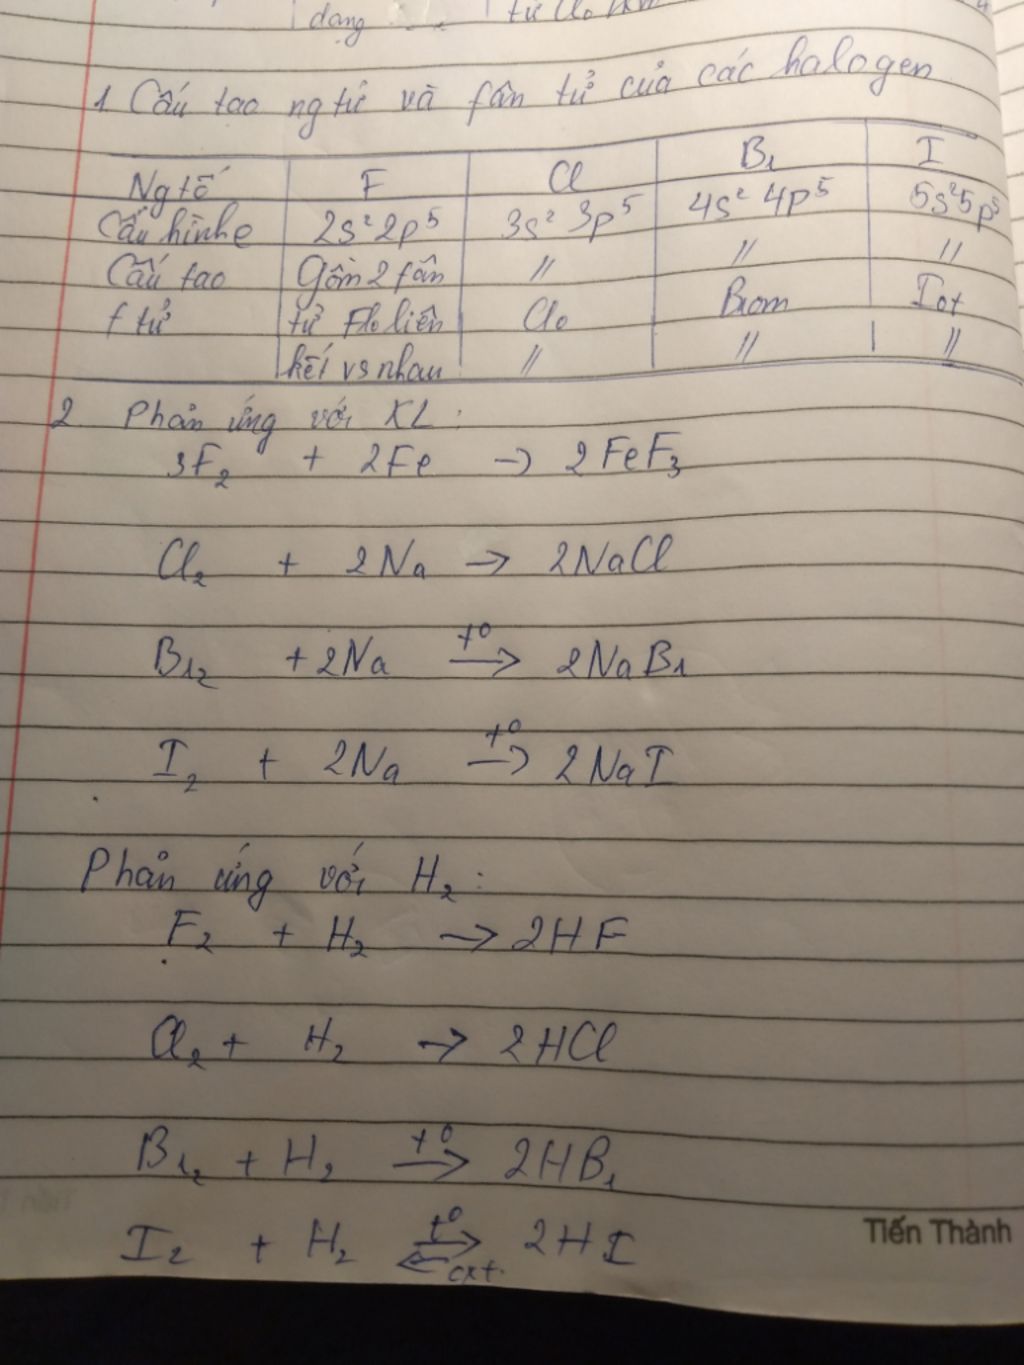 dạng
từ Clo
1 Cấu tao ng tử và fân tử của các halogen
Ng tố F Cl Br I
Cấu hình e 2s² 2p⁵ 3s² 3p⁵ 4s² 4p⁵ 5s² 5p⁵
Cấu tao Gồm 2 fân // // //
f tử tử Flo liên Clo Brom Iot
kết vs nhau // // //
2 Phản ứng với KL:
3F₂ + 2Fe → 2FeF₃
Cl₂ + 2Na → 2NaCl
Br₂ + 2Na t⁰→ 2NaBr
I₂ + 2Na t⁰→ 2NaI
Phản ứng với H₂:
F₂ + H₂ → 2HF
Cl₂ + H₂ → 2HCl
Br₂ + H₂ t⁰→ 2HBr
I₂ + H₂ t⁰⇄cxt 2HI
Tiến Thành